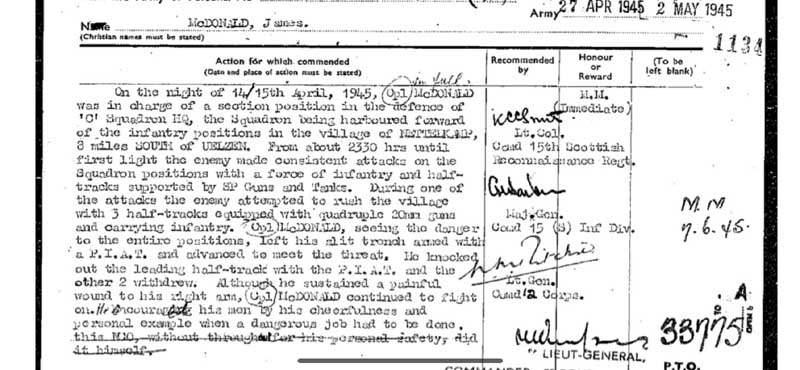 Army 27 APR 1945 2 MAY 1945
Name McDONALD, James.
(Christian names must be stated)
1134
Action for which commended
(Date and place of action must be stated)
Recommended by
Honour or Reward
(To be left blank)
in full.
On the night of 14/15th April, 1945, Cpl/McDONALD
was in charge of a section position in the defence of
'C' Squadron HQ, the Squadron being harboured forward
of the infantry positions in the village of NETTELKAMP,
8 miles SOUTH of UELZEN. From about 2330 hrs until
first light the enemy made consistent attacks on the
Squadron positions with a force of infantry and half-
tracks supported by SP Guns and Tanks. During one of
the attacks the enemy attempted to rush the village
with 3 half-tracks equipped with quadruple 20mm guns
and carrying infantry. Cpl/McDONALD, seeing the danger
to the entire positions, left his slit trench armed with
a P.I.A.T. and advanced to meet the threat. He knocked
out the leading half-track with the P.I.A.T. and the
other 2 withdrew. Although he sustained a painful
wound to his right arm, Cpl/McDONALD continued to fight
on. He encouraged his men by his cheerfulness and
personal example when a dangerous job had to be done.
this NCO, without thought for his personal safety, did
it himself.
Lt. Col.
Comd 15th Scottish
Reconnaissance Regt.
Maj. Gen.
Comd 15 (S) Inf Div.
Lt. Gen.
Comd 12 Corps.
M.M.
(Immediate)
M.M
7.6.45.
A
33775
LIEUT-GENERAL,
P.T.O.